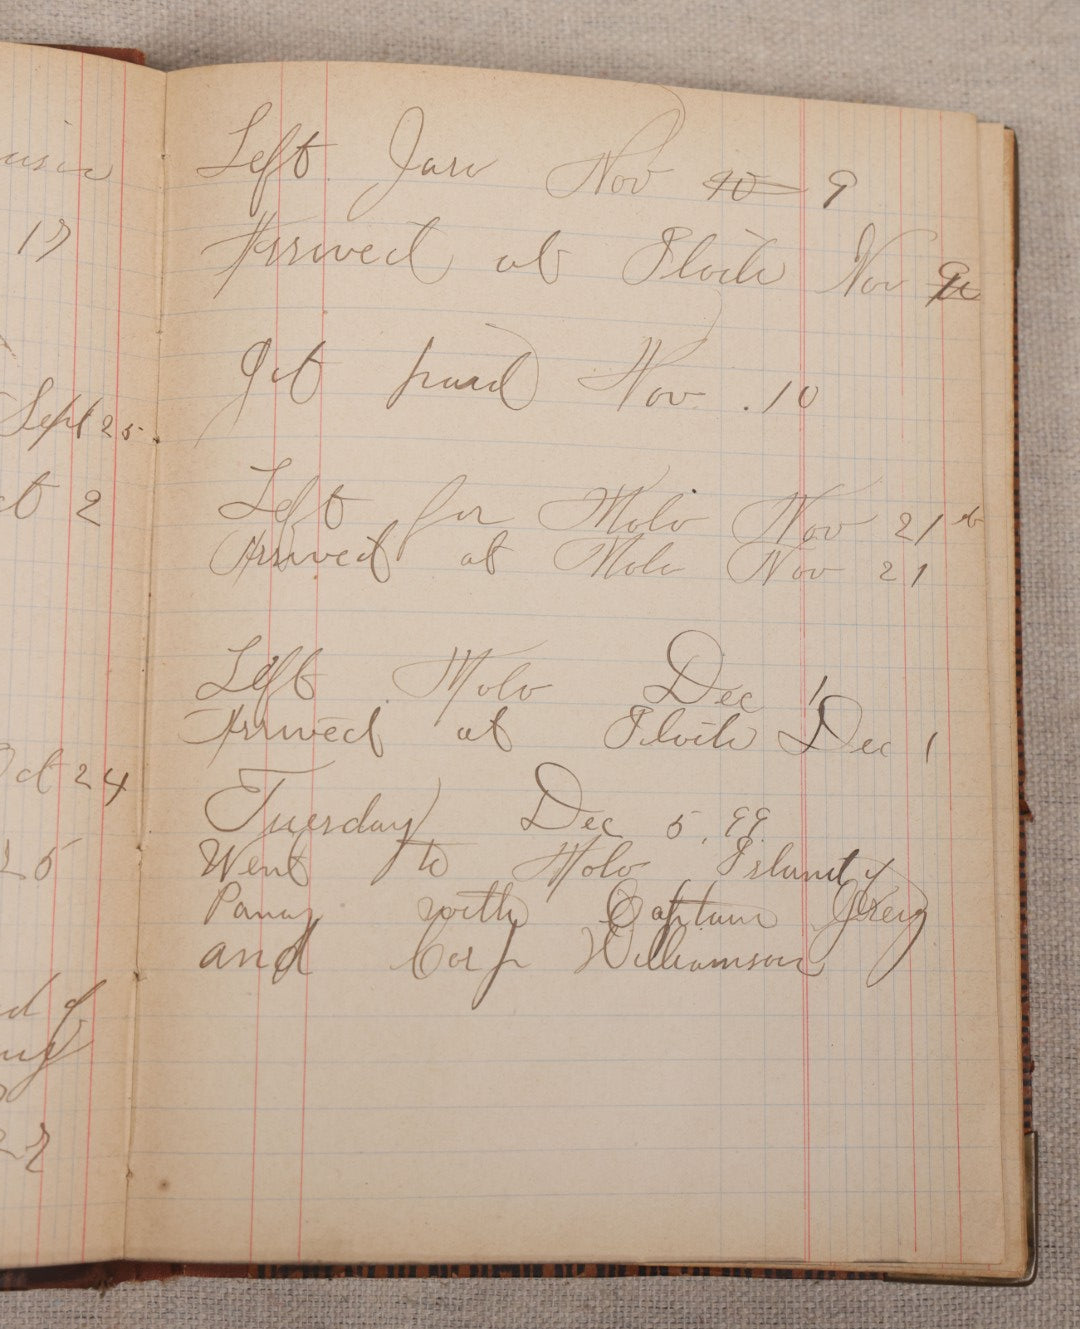 17
Sept 25
2
Oct 24
25
27
Left Jaro Nov 10 9
Arrived at Iloilo Nov 9
Got paid Nov. 10
Left for Molo Nov 21
Arrived at Molo Nov 21
Left Molo Dec 1
Arrived at Iloilo Dec 1
Tuesday Dec 5, 99
Went to Molo Island of
Panay with Captain
and Corp Williamson